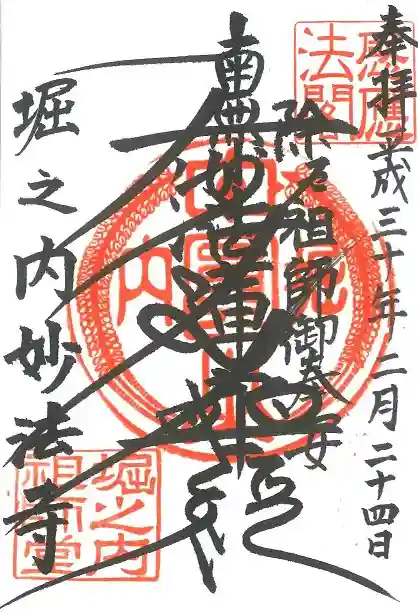 奉拝 平成三十年二月二十四日
除厄祖師御奉安
南無妙法蓮華経
堀之内妙法寺
感應
法閣
堀之内
祖師堂